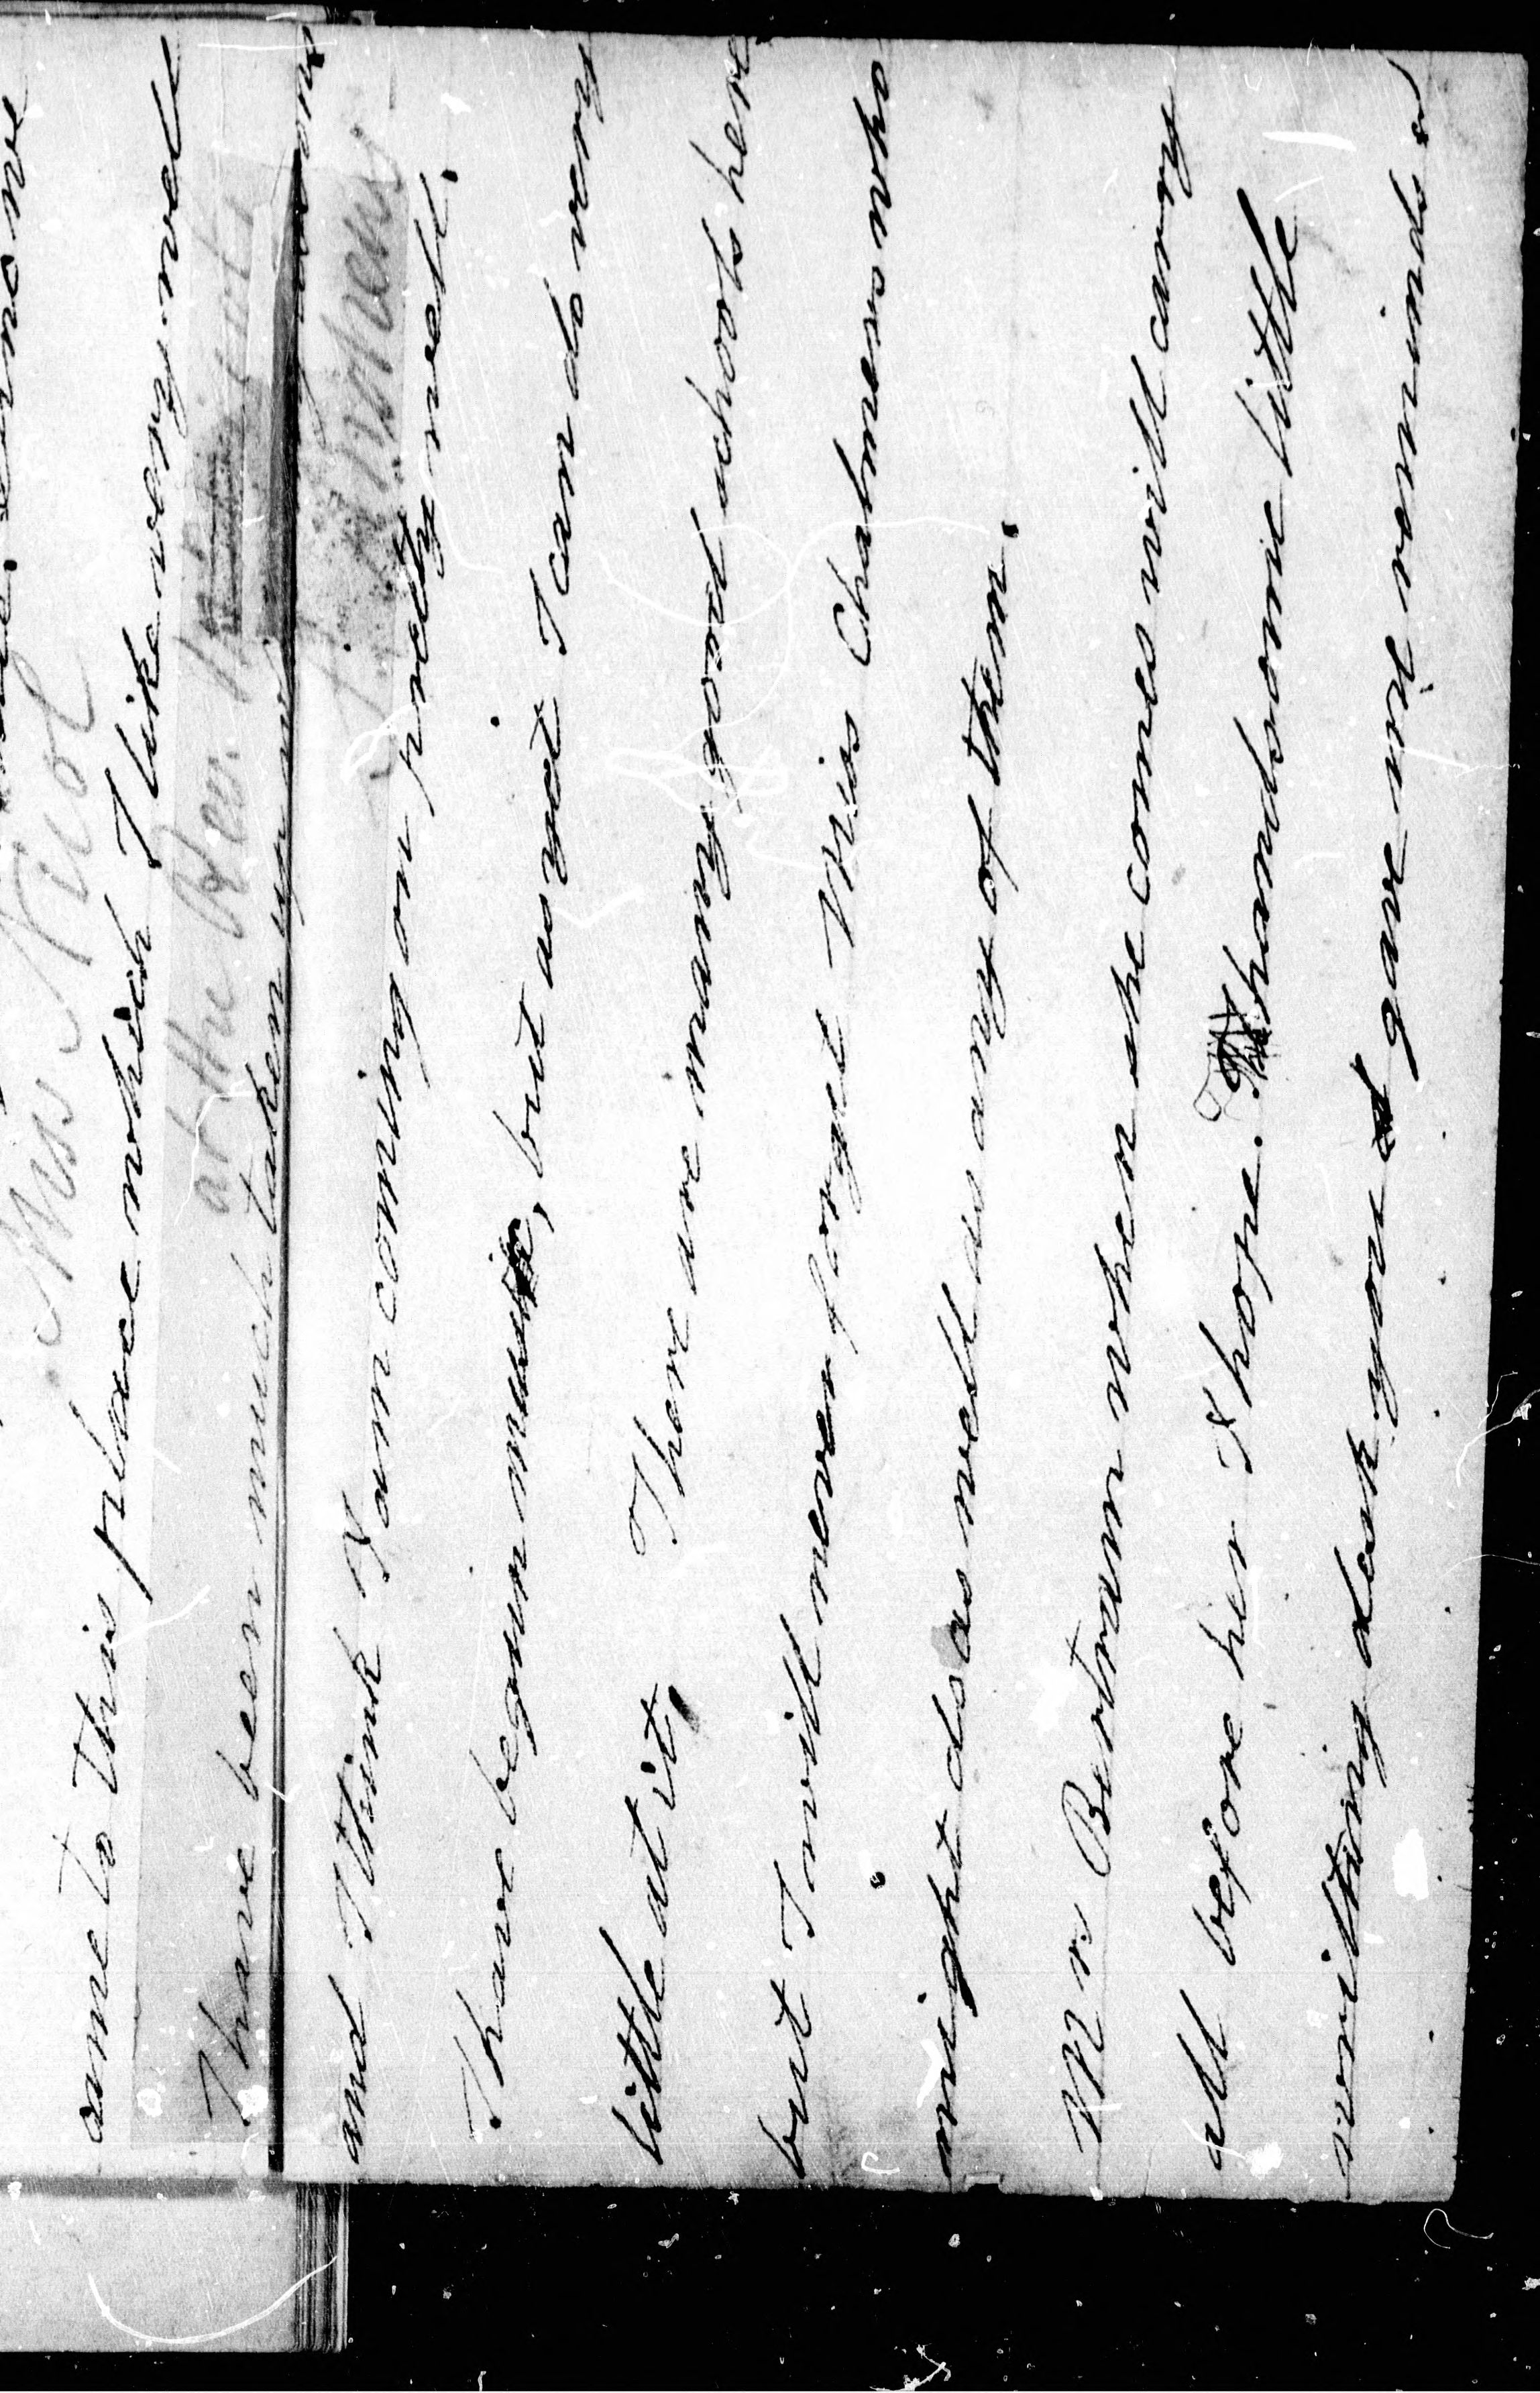 Miss Nicol
came to this place which I like very well
at the Rev.
I have been much taken up
and I think I am coming on pretty well.
I have begun music, but as yet I can do very
little at it, There are many good schools here
but I will never forget Miss Chalmers who
might do as well as any of them.
Mr Bertram when she comes will carry
all before her I hope. handsome little
writting desk you gave me reminds